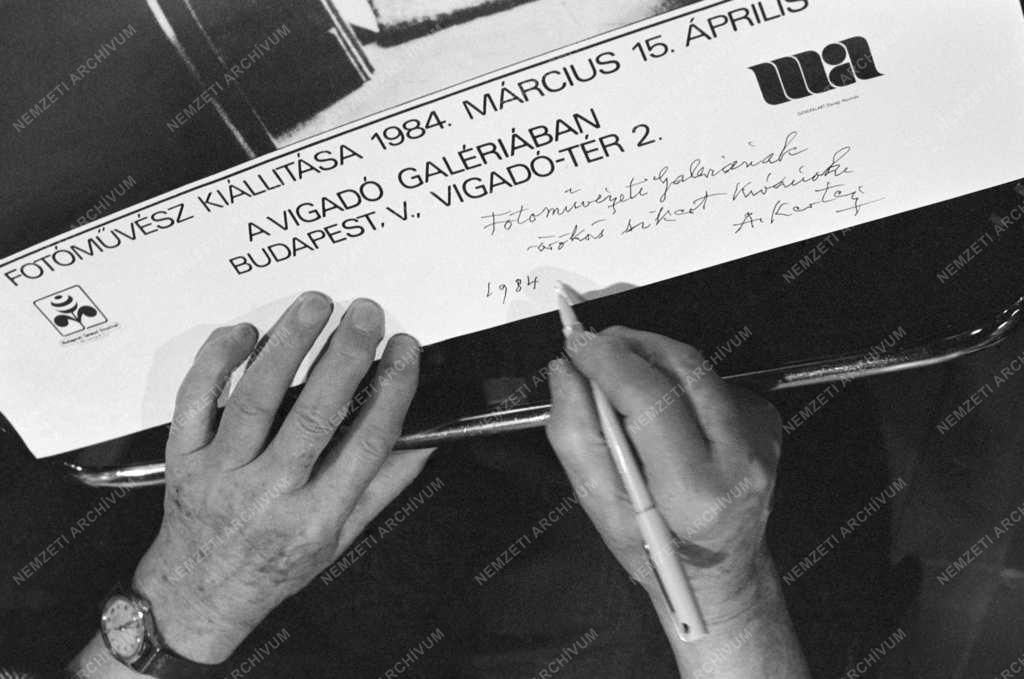 FOTÓMŰVÉSZ KIÁLLITÁSA 1984. MÁRCIUS 15. ÁPRILIS
A VIGADÓ GALÉRIÁBAN
BUDAPEST, V., VIGADÓ-TÉR 2.
ma
Fotoművézeti Galeriának
örökös sikert kivánok
A. Kertész
1984
Budapest Spring Festival
NEMZETI ARCHÍVUM